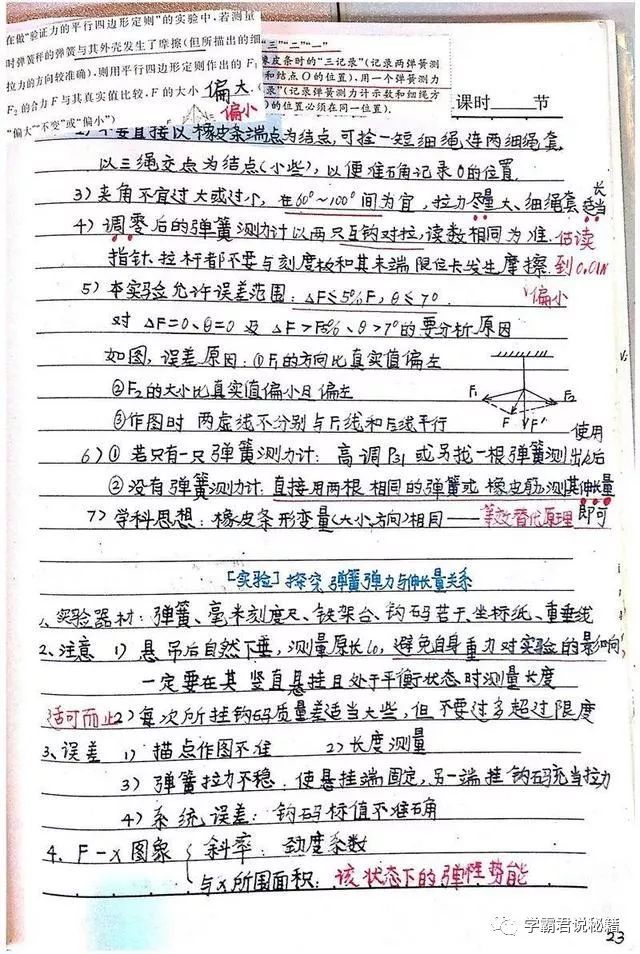 在做“验证力的平行四边形定则”的实验中,若测量
时弹簧秤的弹簧与其外壳发生了摩擦(但所描出的细
拉力的方向较准确),则用平行四边形定则作出的F₁
F₂的合力F与其真实值比较,F的大小 偏大.(
“偏大”“不变”或“偏小”) 偏小
“三”“二”“一”
橡皮条时的“三记录”(记录两弹簧测
和结点O的位置),用一个弹簧测力
录”(记录弹簧测力计示数和细绳方
)的位置必须在同一位置).
课时 节
不要直接以橡皮条端点为结点,可拴一短细绳连两细绳套
以三绳交点为结点(小些),以便准确记录O的位置
3)夹角不宜过大或过小,在60°~100°间为宜,拉力尽量大、细绳套适当长
4)调零后的弹簧测力计以两只互钩对拉,读数相同为准.估读
指针、拉杆都不要与刻度板和其末端限位卡发生摩擦.到0.01N
5)本实验允许误差范围:ΔF≤5%F,θ≤7°. 偏小
对ΔF=0、θ=0及ΔF>F5%、θ>7°的要分析原因
如图,误差原因:①F₁的方向比真实值偏左
②F₂的大小比真实值偏小且偏左
③作图时两虚线不分别与F₁线和F₂线平行
F₁ F F′ F₂
6)①若只有一只弹簧测力计:高调P31或另找一根弹簧测出k后使用
②没有弹簧测力计:直接用两根相同的弹簧或橡皮筋,测其伸长量即可
7)学科思想:橡皮条形变量(大小方向)相同——等效替代原理
[实验]探究弹簧弹力与伸长量关系
1、实验器材:弹簧、毫米刻度尺、铁架台、钩码若干、坐标纸、重垂线
2、注意 1)悬吊后自然下垂,测量原长l₀,避免自身重力对实验的影响,
一定要在其竖直悬挂且处于平衡状态时测量长度
适可而止2)每次所挂钩码质量差适当大些,但不要过多超过限度
3、误差 1)描点作图不准 2)长度测量
3)弹簧拉力不稳:使悬挂端固定,另一端挂钩码充当拉力
4)系统误差:钩码标值不准确
4、F-x图象 斜率:劲度系数
与x所围面积:该状态下的弹性势能
学霸君说秘籍
23